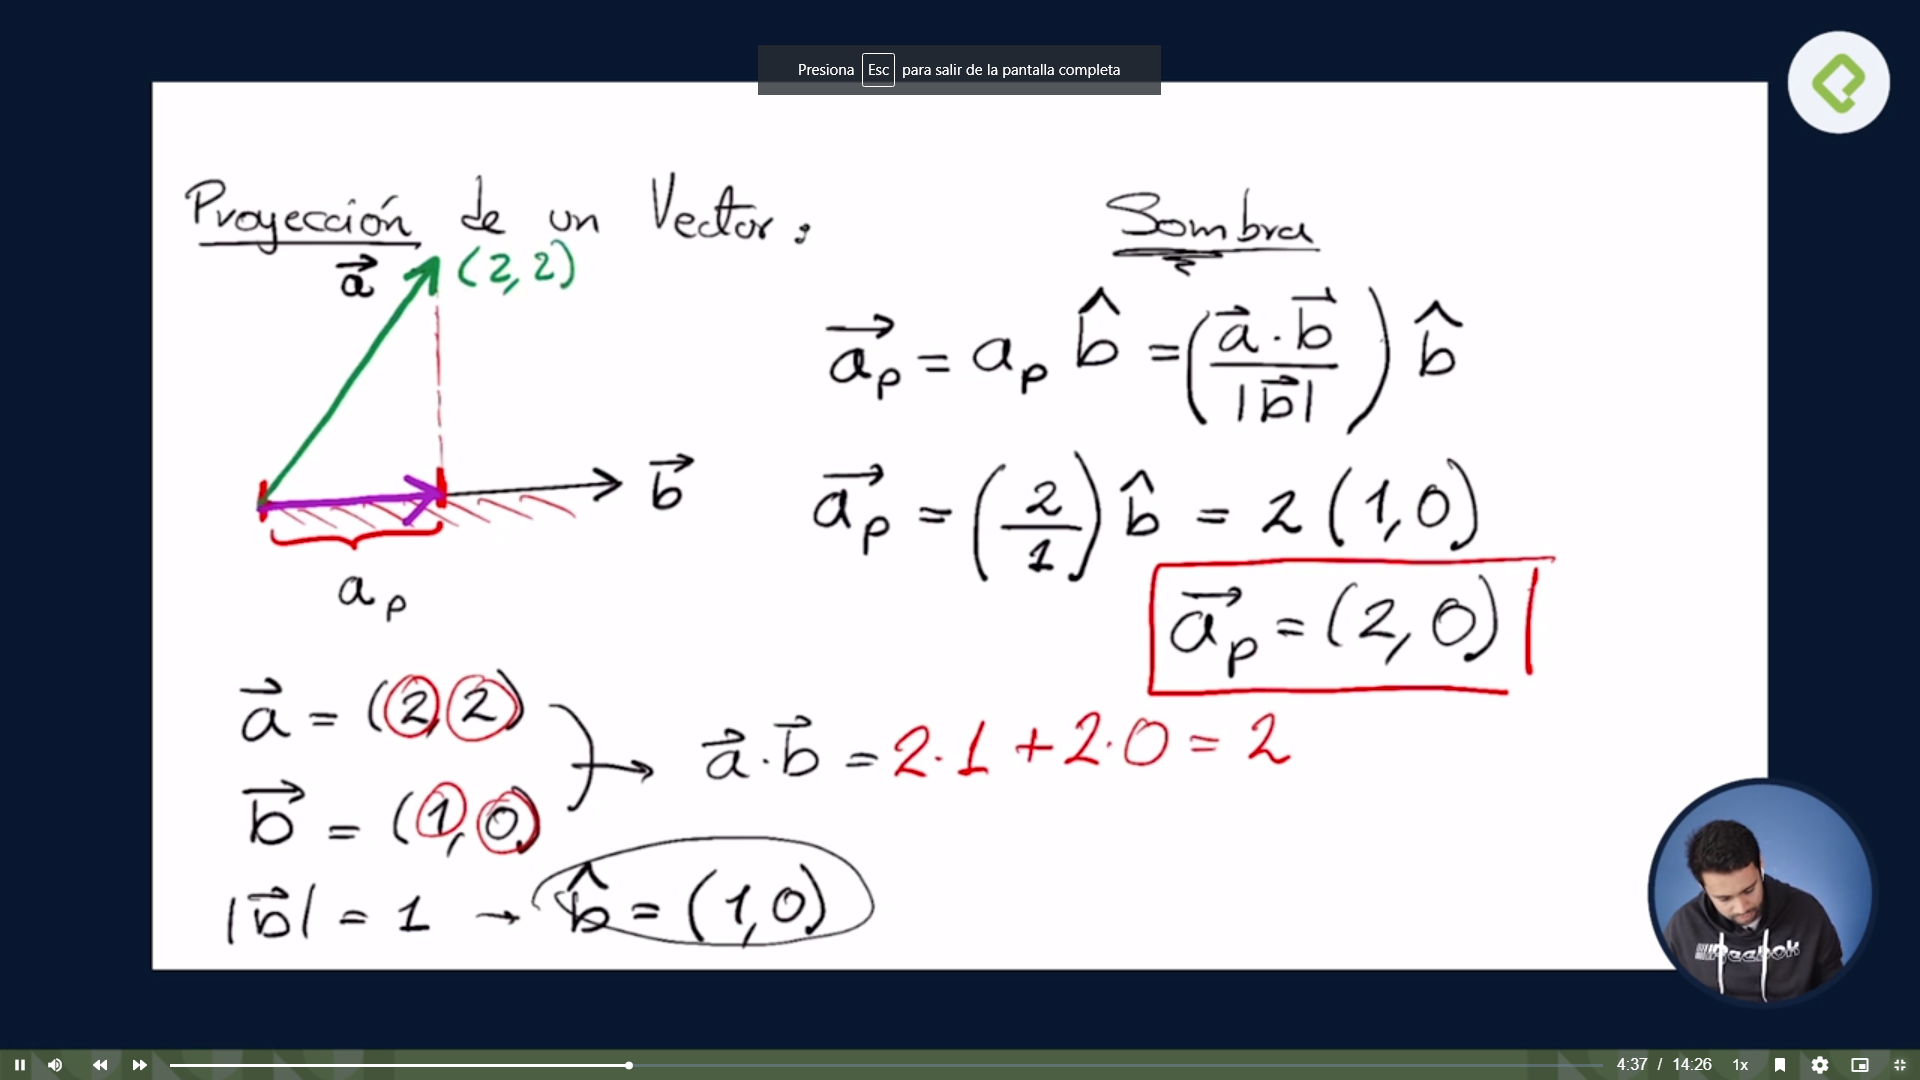 Presiona Esc para salir de la pantalla completa
Proyección de un Vector:
Sombra
a⃗ (2,2)
b⃗
aₚ
a⃗ₚ = aₚ b̂ = (a⃗·b⃗ / |b⃗|) b̂
a⃗ₚ = (2/1) b̂ = 2 (1,0)
a⃗ₚ = (2,0)
a⃗ = (2,2)
a⃗·b⃗ = 2·1 + 2·0 = 2
b⃗ = (1,0)
|b⃗| = 1 → b̂ = (1,0)
Reebok
4:37 / 14:26 1x